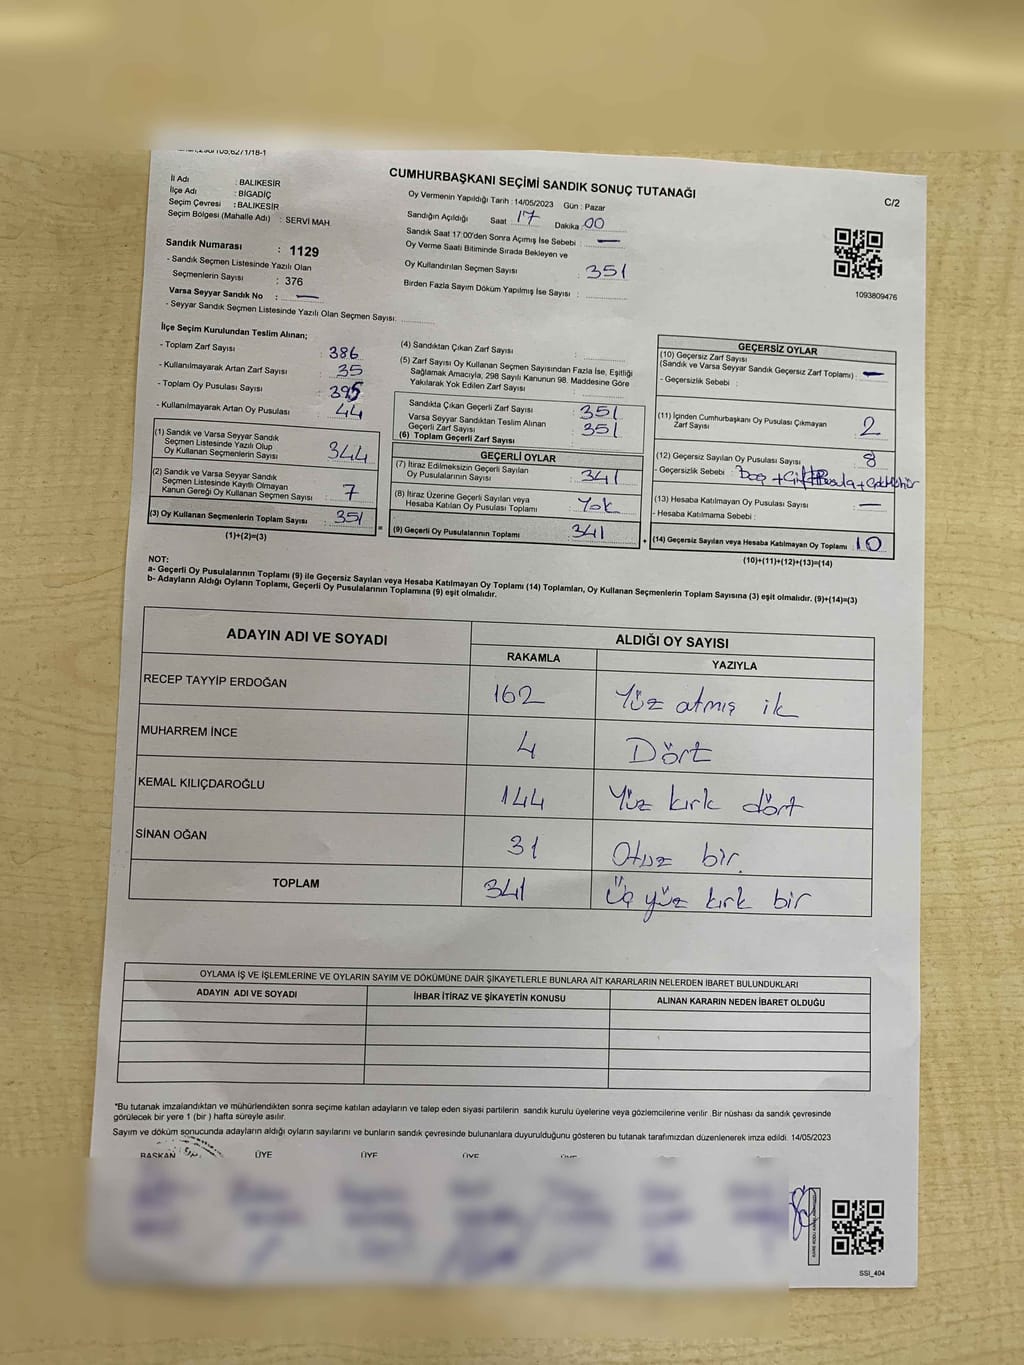 CUMHURBAŞKANI SEÇİMİ SANDIK SONUÇ TUTANAĞI
C/2
İl Adı : BALIKESİR
İlçe Adı : BİGADİÇ
Seçim Çevresi : BALIKESİR
Seçim Bölgesi (Mahalle Adı) : SERVİ MAH.
Sandık Numarası : 1129
- Sandık Seçmen Listesinde Yazılı Olan
Seçmenlerin Sayısı : 376
Varsa Seyyar Sandık No : —
- Seyyar Sandık Seçmen Listesinde Yazılı Olan Seçmen Sayısı:
Oy Vermenin Yapıldığı Tarih : 14/05/2023 Gün : Pazar
Sandığın Açıldığı Saat 17 Dakika 00
Sandık Saat 17:00'den Sonra Açımış İse Sebebi : —
Oy Verme Saati Bitiminde Sırada Bekleyen ve
Oy Kullandırılan Seçmen Sayısı : 351
Birden Fazla Sayım Döküm Yapılmış İse Sayısı :
1093809476
İlçe Seçim Kurulundan Teslim Alınan;
- Toplam Zarf Sayısı : 386
- Kullanılmayarak Artan Zarf Sayısı : 35
- Toplam Oy Pusulası Sayısı : 395
- Kullanılmayarak Artan Oy Pusulası : 44
(1) Sandık ve Varsa Seyyar Sandık
Seçmen Listesinde Yazılı Olup
Oy Kullanan Seçmenlerin Sayısı : 344
(2) Sandık ve Varsa Seyyar Sandık
Seçmen Listesinde Kayıtlı Olmayan
Kanun Gereği Oy Kullanan Seçmen Sayısı : 7
(3) Oy Kullanan Seçmenlerin Toplam Sayısı : 351
(1)+(2)=(3)
(4) Sandıktan Çıkan Zarf Sayısı :
(5) Zarf Sayısı Oy Kullanan Seçmen Sayısından Fazla İse, Eşitliği
Sağlamak Amacıyla, 298 Sayılı Kanunun 98. Maddesine Göre
Yakılarak Yok Edilen Zarf Sayısı :
Sandıkta Çıkan Geçerli Zarf Sayısı : 351
Varsa Seyyar Sandıktan Teslim Alınan
Geçerli Zarf Sayısı : 351
(6) Toplam Geçerli Zarf Sayısı
GEÇERLİ OYLAR
(7) İtiraz Edilmeksizin Geçerli Sayılan
Oy Pusulalarının Sayısı : 341
(8) İtiraz Üzerine Geçerli Sayılan veya
Hesaba Katılan Oy Pusulası Toplamı : Yok
= (9) Geçerli Oy Pusulalarının Toplamı : 341
GEÇERSİZ OYLAR
(10) Geçersiz Zarf Sayısı
(Sandık ve Varsa Seyyar Sandık Geçersiz Zarf Toplamı) : —
- Geçersizlik Sebebi :
(11) İçinden Cumhurbaşkanı Oy Pusulası Çıkmayan
Zarf Sayısı : 2
(12) Geçersiz Sayılan Oy Pusulası Sayısı : 8
- Geçersizlik Sebebi :
(13) Hesaba Katılmayan Oy Pusulası Sayısı : —
- Hesaba Katılmama Sebebi :
+ (14) Geçersiz Sayılan veya Hesaba Katılmayan Oy Toplamı : 10
(10)+(11)+(12)+(13)=(14)
NOT:
a- Geçerli Oy Pusulalarının Toplamı (9) ile Geçersiz Sayılan veya Hesaba Katılmayan Oy Toplamı (14) Toplamları, Oy Kullanan Seçmenlerin Toplam Sayısına (3) eşit olmalıdır. (9)+(14)=(3)
b- Adayların Aldığı Oyların Toplamı, Geçerli Oy Pusulalarının Toplamına (9) eşit olmalıdır.
ADAYIN ADI VE SOYADI
ALDIĞI OY SAYISI
RAKAMLA YAZIYLA
RECEP TAYYİP ERDOĞAN 162 Yüz atmış ik
MUHARREM İNCE 4 Dört
KEMAL KILIÇDAROĞLU 144 Yüz kırk dört
SİNAN OĞAN 31 Otuz bir.
TOPLAM 341 Üç yüz kırk bir
OYLAMA İŞ VE İŞLEMLERİNE VE OYLARIN SAYIM VE DÖKÜMÜNE DAİR ŞİKAYETLERLE BUNLARA AİT KARARLARIN NELERDEN İBARET BULUNDUKLARI
ADAYIN ADI VE SOYADI İHBAR İTİRAZ VE ŞİKAYETİN KONUSU ALINAN KARARIN NEDEN İBARET OLDUĞU
*Bu tutanak imzalandıktan ve mühürlendikten sonra seçime katılan adayların ve talep eden siyasi partilerin sandık kurulu üyelerine veya gözlemcilerine verilir. Bir nüshası da sandık çevresinde
görülecek bir yere 1 (bir ) hafta süreyle asılır.
Sayım ve döküm sonucunda adayların aldığı oyların sayılarını ve bunların sandık çevresinde bulunanlara duyurulduğunu gösteren bu tutanak tarafımızdan düzenlenerek imza edildi. 14/05/2023
BAŞKAN ÜYE ÜYE ÜYE
SSI_404